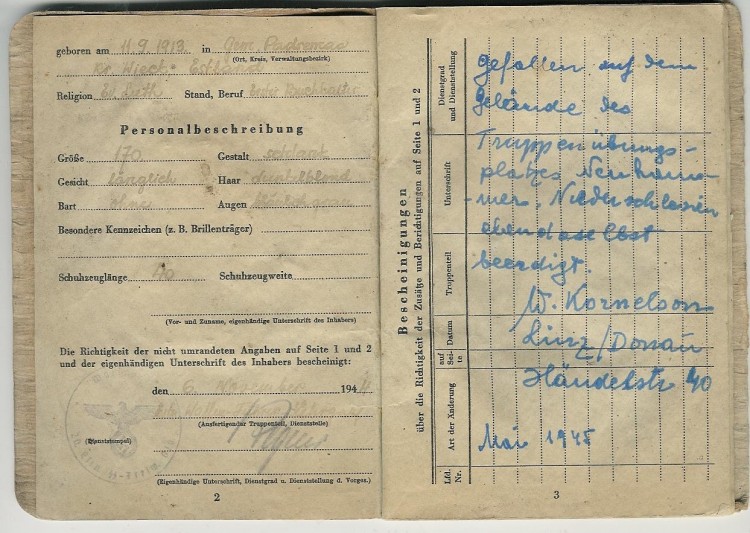 geboren am 11.9.1913 in Gem. Padremaa
(Ort, Kreis, Verwaltungsbezirk)
Estland
Religion Stand, Beruf
Personalbeschreibung
Größe 170 Gestalt schlank
Gesicht länglich Haar dunkelblond
Bart ohne Augen
Besondere Kennzeichen (z. B. Brillenträger)
Schuhzeuglänge Schuhzeugweite
(Vor- und Zuname, eigenhändige Unterschrift des Inhabers)
Die Richtigkeit der nicht umrandeten Angaben auf Seite 1 und 2
und der eigenhändigen Unterschrift des Inhabers bescheinigt:
den 6. 1944
(Ausfertigender Truppenteil, Dienststelle)
(Dienststempel)
(Eigenhändige Unterschrift, Dienstgrad u. Dienststellung d. Vorges.)
2
Bescheinigungen
über die Richtigkeit der Zusätze und Berichtigungen auf Seite 1 und 2
Dienstgrad
und Dienststellung
Unterschrift
Truppenteil
Datum
auf
Sei-
te
Art der Änderung
Lfd.
Nr.
Gefallen auf dem
Gelände des
Truppenübungs-
platzes Neuham-
mer, Niederschlesien
ebendaselbst
beerdigt.
W. Kornelson
Linz/Donau
Händelstr 40
Mai 1945
3